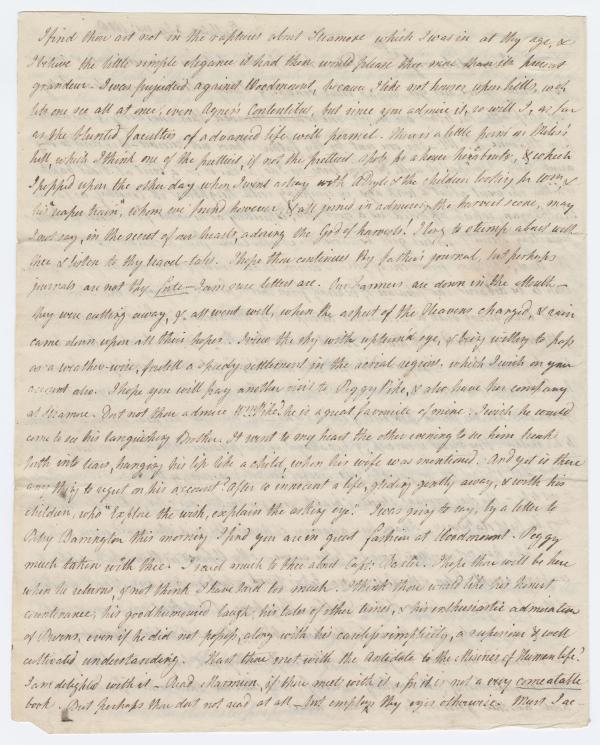 I find thou art not in the raptures about Seamore which I was in at thy age, &
I believe the little simple elegance it had then would please thee more than its present
grandeur. I was prejudiced against Woodmount, because I like not houses upon hills, wch
lets one see all at once, even Agnes's Contentibus, but since you admire it, so will I, as far
as the blunted faculties of advanced life will permit. There is a little farm on Wales's
hill, which I think one of the prettiest, if not the prettiest spots for a house hereabouts, & which
I popped upon the other day when I went astray with Abyle & the children looking for Wm &
his "reaper train", whom we found however & all joined in admiring the harvest scene, may
I not say, in the secret of our hearts, adoring the God of harvests! I long to stump about with
thee & listen to thy travel-tales. I hope thou continues thy father's journal, but perhaps
journals are not thy forte — I am sure letters are. Our farmers are down in the Mouth —
They were cutting away, & all went well, when the aspect of the Heavens changed, & rain
came down upon all their hopes. I view the sky with upturn'd eye, & being willing to pass
as a weather-wise, foretell a speedy settlement in the aerial regions, which I wish on your
account also. I hope you will pay another visit to Peggy Pike, & also have her company
at Seamore. Dost not thou admire Wm Pike? he is a great favourite of mine. I wish he would
come to see his languishing Brother. It went to my heart the other evening to see him break
forth into tears, hanging his lip like a child, when his wife was mentioned. And yet is there
any thing to regret on his account? After so innocent a life, gliding gently away, & with his
children, who "Explore the wish, explain the asking eye." I was going to say, by a letter to
Betsy Barrington this morning I find you are in great fashion at Woodmount. Peggy
much taken with thee. I said much to thee about Capt. I hope thou will be here
when he returns, & not think I have said too much. I think thou would like his honest
countenance, his goodhumoured laugh, his tales of other times, & his enthusiastic admiration
of Burns, even if he did not possess, along with his careless simplicity, a superior & well
cultivated understanding. Hast thou met with the Antidote to the Miseries of Human life?
I am delighted with it — Read Marmion, if thou meet with it, for it is not a very comeatable
book. But perhaps thou dost not read at all — but employs thy eyes otherwise. Must I ac-